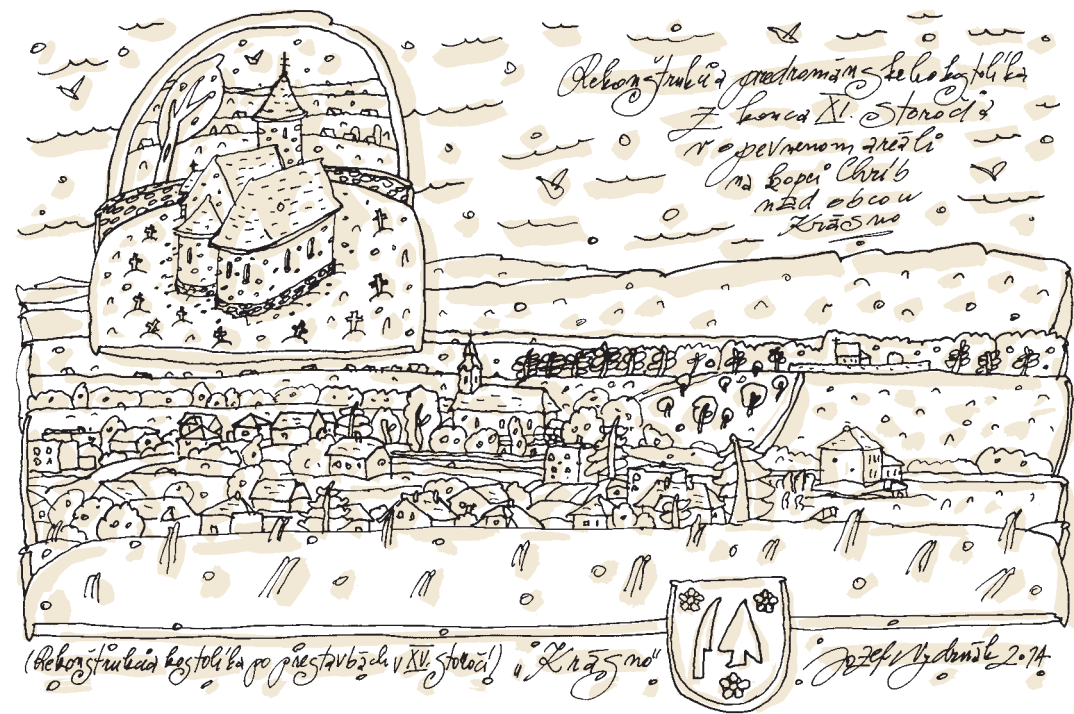 Rekonštrukcia predrománskeho kostolíka
z konca XI. storočia
v opevnenom areáli
na kopci Chríb
nad obcou
Krásno
(Rekonštrukcia kostolíka po přestavbách v XV. storočí) „Krásno“ Jozef Vydrnák 2014